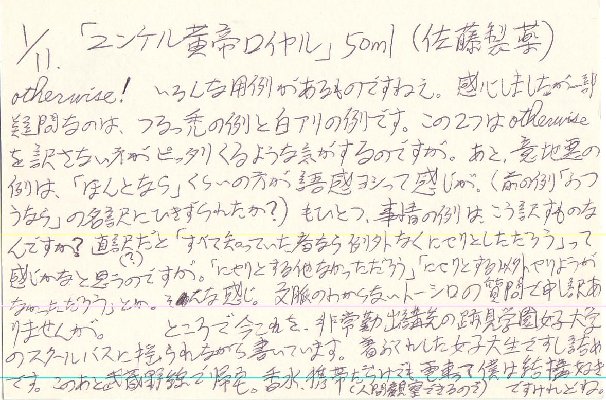 1/11.「ユンケル黄帝ロイヤル」50ml(佐藤製薬)
otherwise! いろんな用例があるものですねえ。感心しましたが一部
疑問なのは、つるっ禿の例と白アリの例です。この2つはotherwise
を訳さない方がピッタリくるような気がするのですが。あと、意地悪の
例は、「ほんとなら」くらいの方が語感ヨシって感じが。(前の例「ふつ
うなら」の名訳にひきずられたか?)もひとつ、事情の例は、こう訳すものな
んですか?直訳だと「すべて知っていた者なら例外なくにやりとしただろう」って
(?)
感じかなと思うのですが。「にやりとする他なかっただろう」「にやりとする以外やりようが
なかっただろう」とか。そんな感じ。文脈のわからないトーシロの質問で申し訳あ
りませんが。 ところで今これを、非常勤出講先の跡見学園女子大学
のスクールバスに揺られながら書いています。着ぶくれした女子大生ですし詰め
です。このあと武蔵野線で帰宅。香水、携帯だらけでも電車って僕は結構好き
(人間観察できるので) ですけれどね。